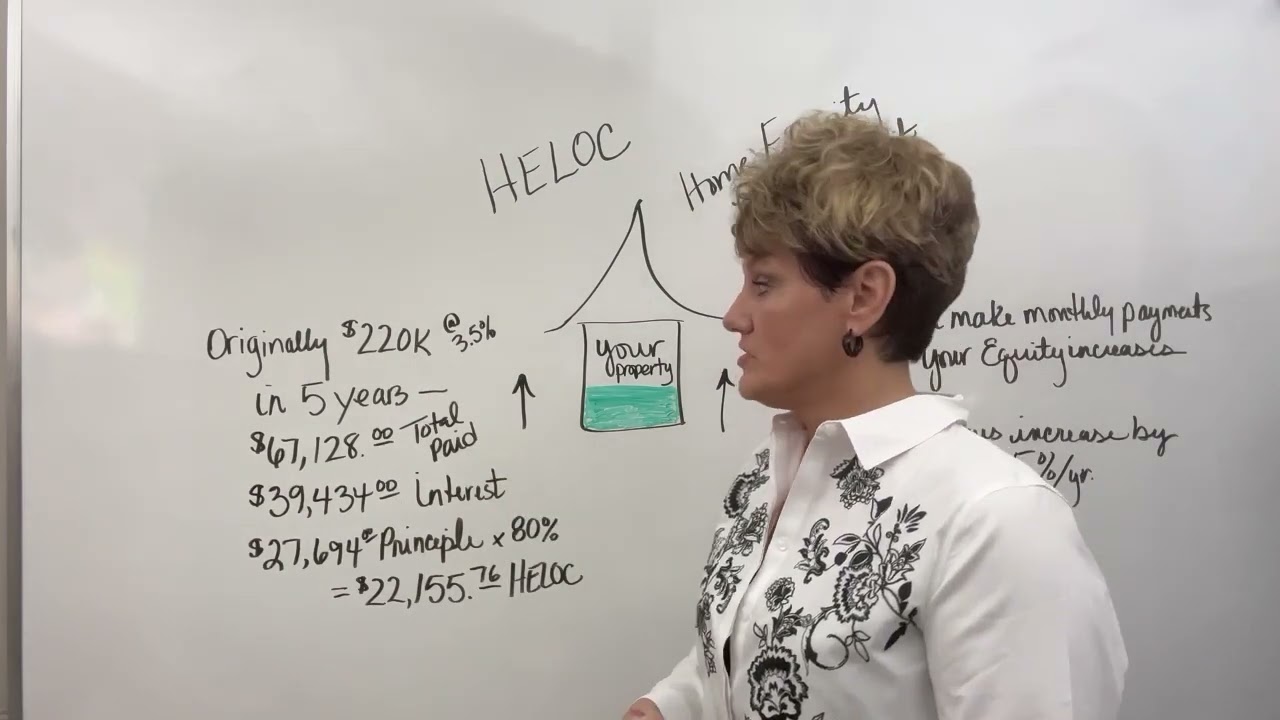 HELOC
Originally $220K @ 3.5%
in 5 years —
$67,128.00 Total Paid
$39,434.00 interest
$27,694.00 Principle x 80%
= $22,155.76 HELOC
your
property
make monthly payments
your Equity increases
increase by
%/yr.